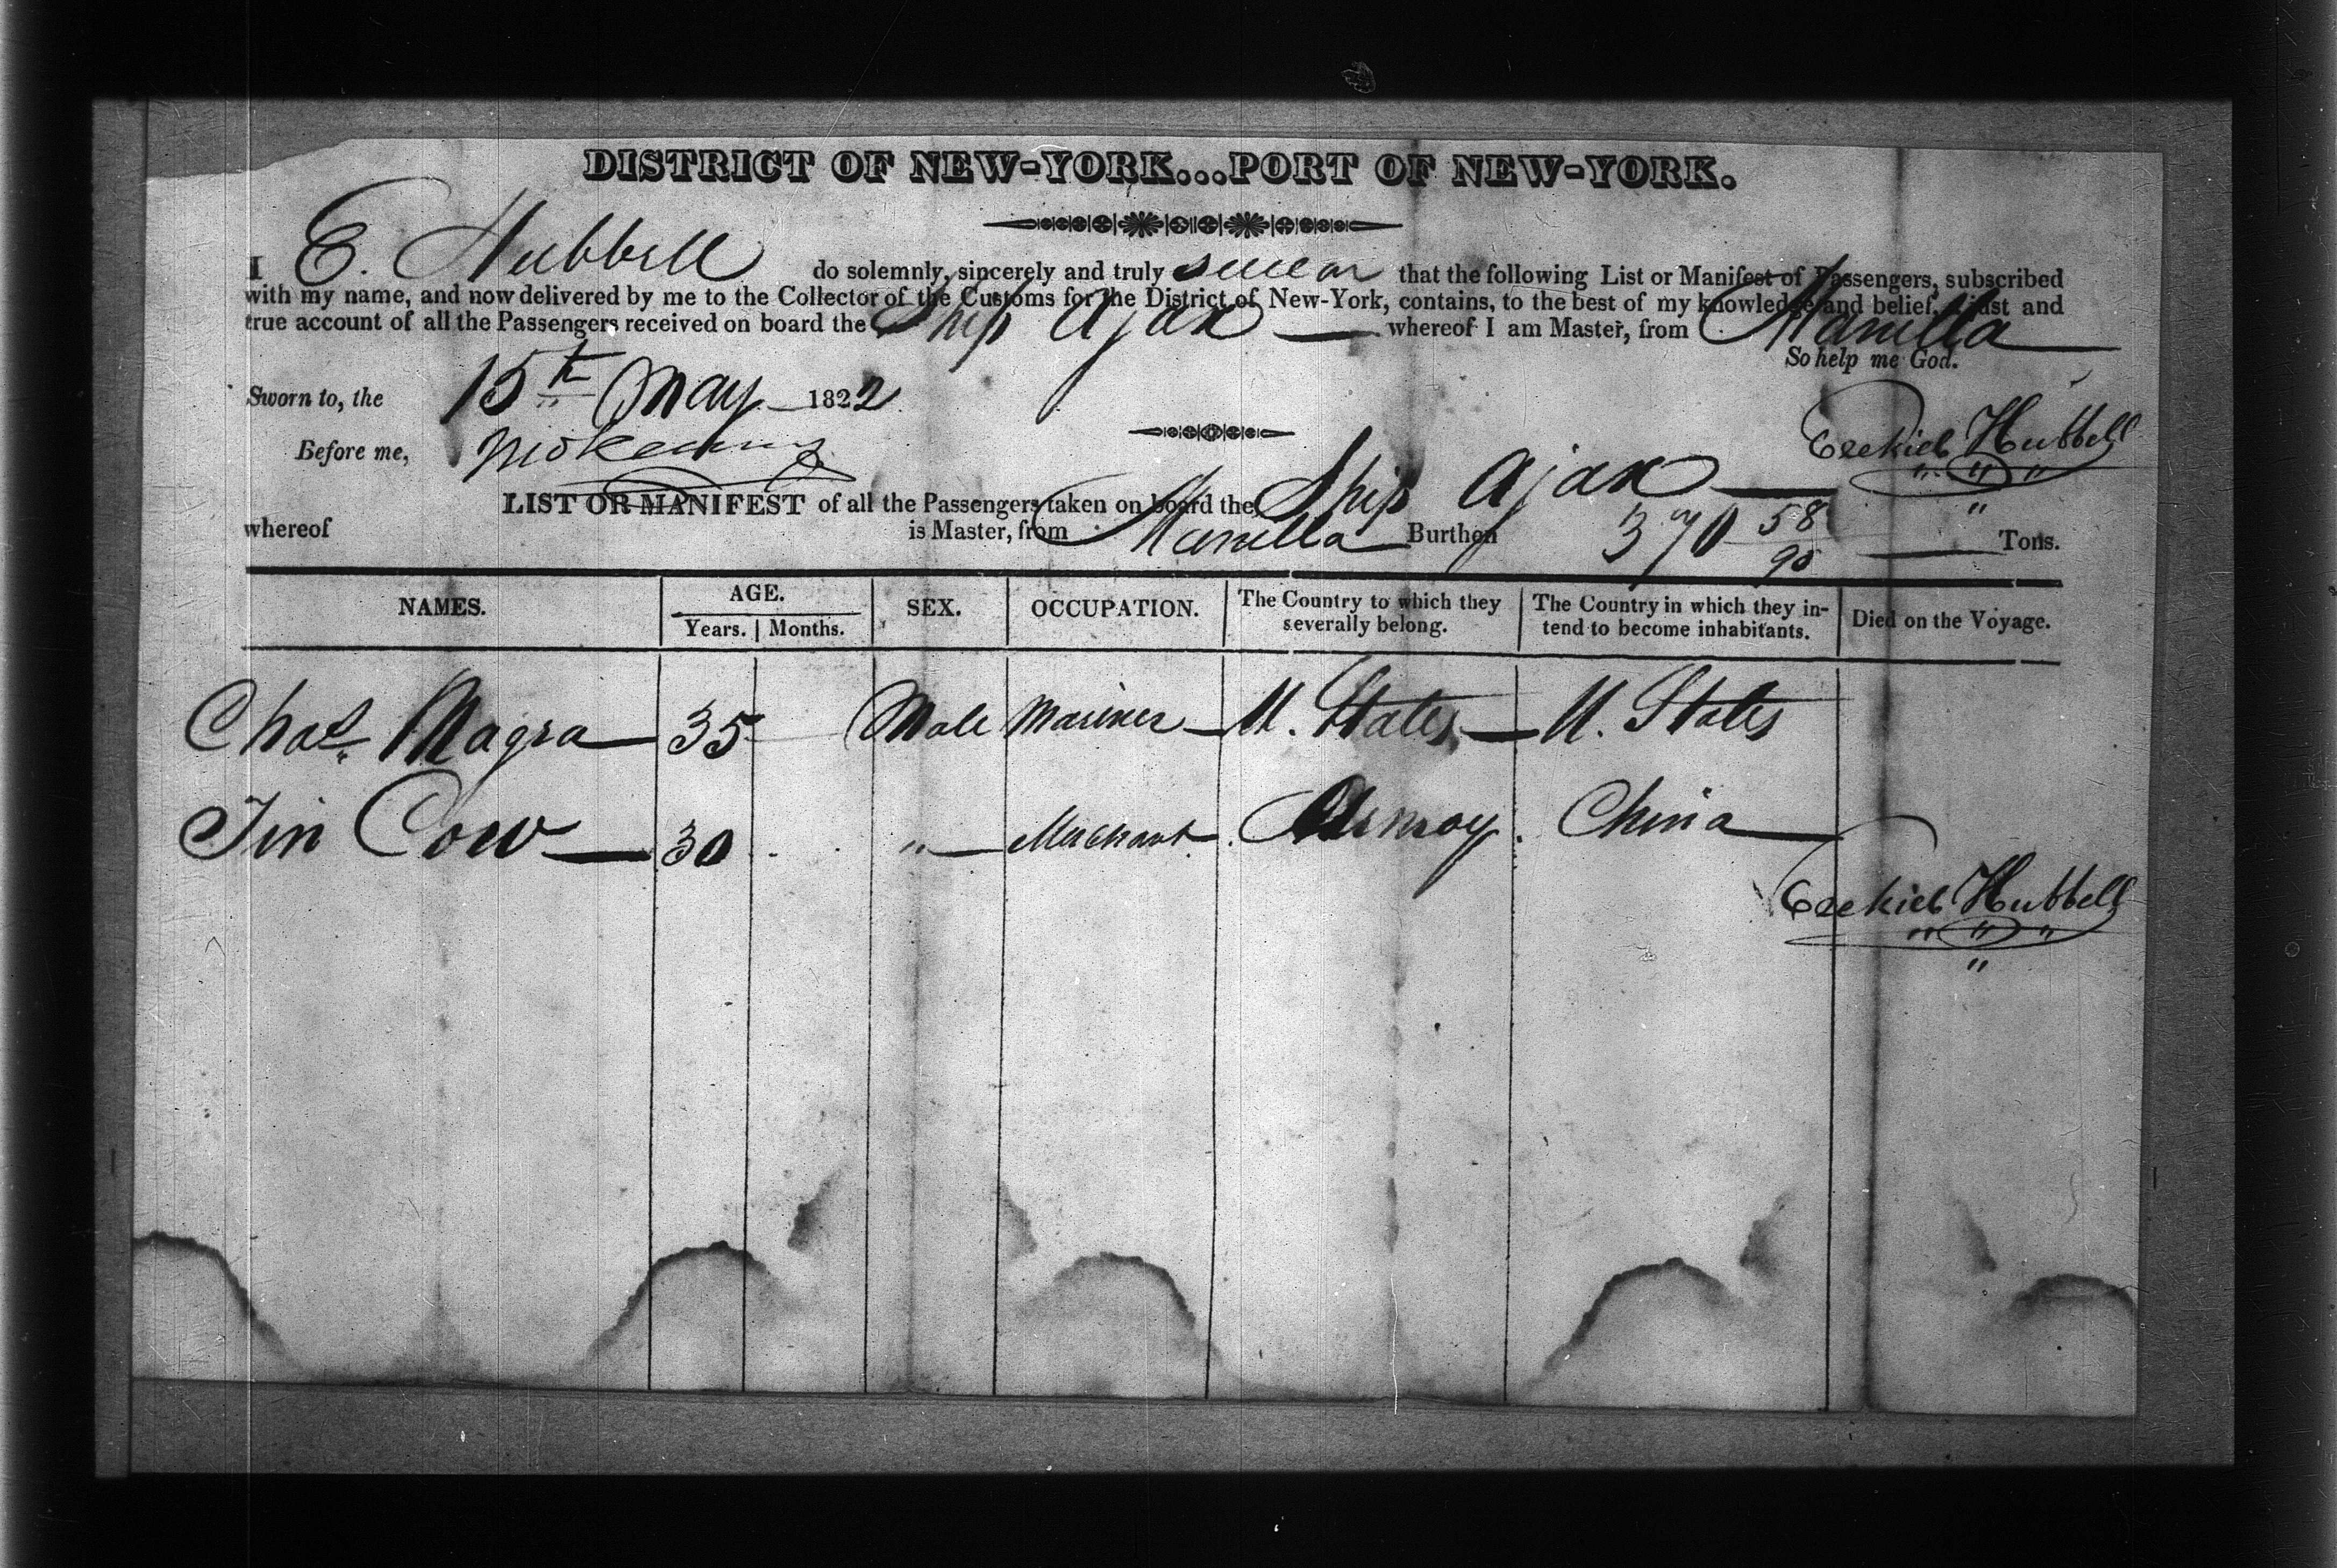 DISTRICT OF NEW-YORK...PORT OF NEW-YORK.
I E. Hubbell do solemnly, sincerely and truly swear that the following List or Manifest of Passengers, subscribed
with my name, and now delivered by me to the Collector of the Customs for the District of New-York, contains, to the best of my knowledge and belief, a just and
true account of all the Passengers received on board the Ship Ajax whereof I am Master, from Manilla
So help me God.
Sworn to, the 15th May 1822
Ezekiel Hubbell
Before me,
LIST OR MANIFEST of all the Passengers taken on board the Ship Ajax
whereof is Master, from Manilla Burthen 370 58/95 Tons.
NAMES. AGE. SEX. OCCUPATION. The Country to which they severally belong. The Country in which they intend to become inhabitants. Died on the Voyage.
Years. Months.
Chas. Magra 35 Male Mariner U. States U. States
Tin Cow 30 " Merchant Amoy China
Ezekiel Hubbell